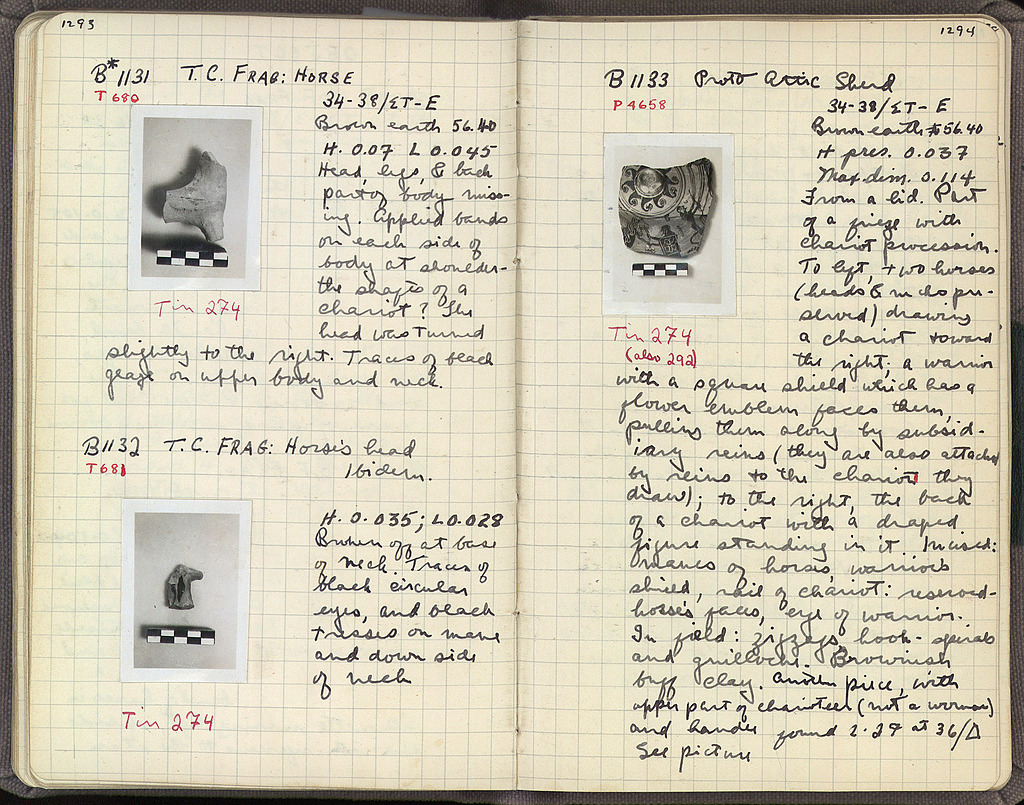 1293
B*1131 T.C. FRAG: HORSE
T 680
34-38/ΣT-E
Brown earth 56.40
H. 0.07 L 0.045
Head, legs, & back
part of body miss-
ing. Applied bands
on each side of
body at shoulder-
the shafts of a
chariot? The
head was turned
slightly to the right. Traces of black
glaze on upper body and neck.
Tin 274
B1132 T.C. FRAG: Horse's head
T681
Ibidem.
H. 0.035; L 0.028
Broken off at base
of neck. Traces of
black circular
eyes, and black
tresses on mane
and down side
of neck
Tin 274
1294
B1133 Proto Attic Sherd
P 4658
34-38/ΣT-E
Brown earth 56.40
H pres. 0.037
Max dim. 0.114
From a lid. Part
of a frieze with
chariot procession.
To left, two horses
(heads & necks pre-
served) drawing
a chariot toward
the right; a warrior
with a square shield which has a
flower emblem faces them,
pulling them along by subsid-
iary reins (they are also attached
by reins to the chariot they
draw); to the right, the back
of a chariot with a draped
figure standing in it. Incised:
manes of horses, warrior's
shield, rail of chariot: reserved-
horse's faces, eye of warrior.
In field: zigzags, hook-spirals
and guilloche. Brownish
buff clay. Another piece, with
upper part of charioteer (not a woman)
and handle found 2·27 at 36/Δ
See picture
Tin 274
(also 292)